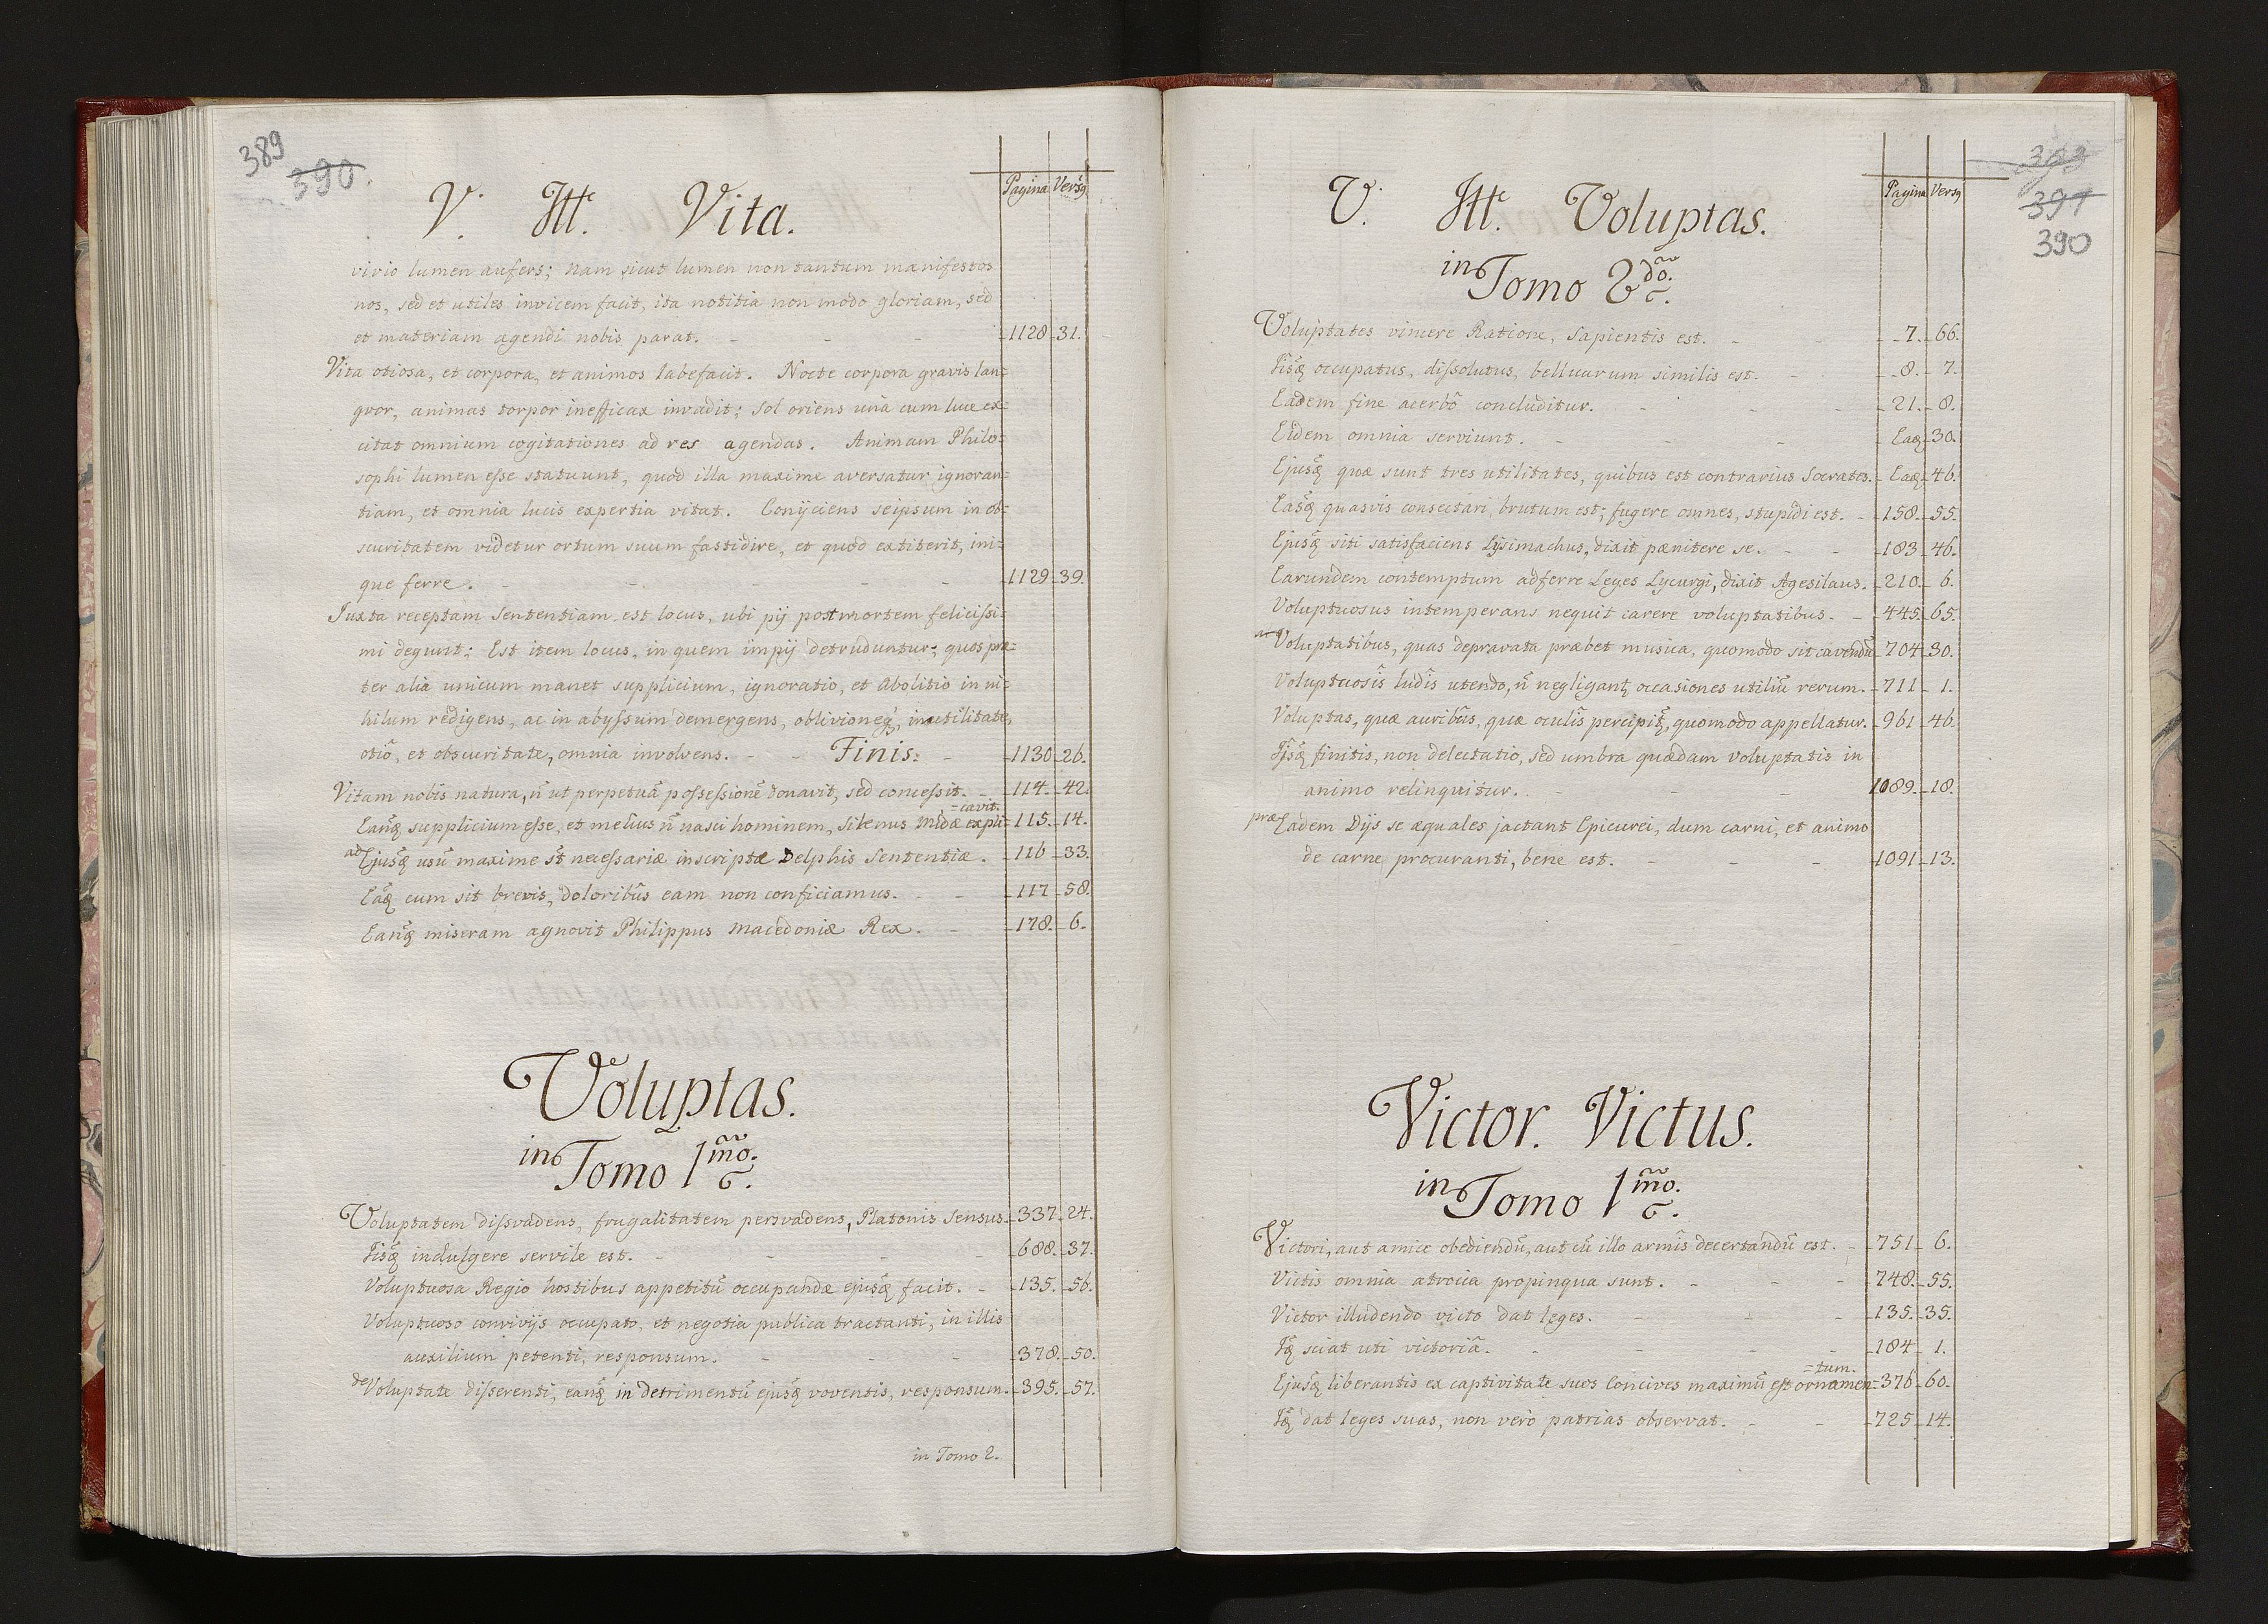 389
390.
V. Itt. Vita.
Pagina Versq
vivio lumen aufers; nam sicut lumen non tantum manifestos
nos, sed et utiles invicem facit, ita notitia non modo gloriam, sed
et materiam agendi nobis parat. - - - 1128. 31.
Vita otiosa, et corpora, et animos labefacit. Nocte corpora gravis lan=
gvor, animas torpor inefficax invadit; Sol oriens unà cum luce ex=
citat omnium cogitationes ad res agendas. Animam Philo=
sophi lumen esse statuunt, quod illa maxime aversatur ignoran=
tiam, et omnia lucis expertia vitat. Conijciens seipsum in ob=
scuritatem videtur ortum suum fastidire, et quod extiterit, ini=
que ferre. - - - - - 1129. 39.
Juxta receptam Sententiam est locus, ubi pij post mortem felicissi=
mi degunt; Est item locus, in quem impij detruduntur; quos præ=
ter alia unicum manet supplicium, ignoratio, et Abolitio in ni=
hilum redigens, ac in abyssum demergens, oblivioneq, inutilitate,
otiô, et obscuritate, omnia involvens. - - Finis: - 1130. 26.
Vitam nobis natura, ñ ut perpetuã possessionẽ donavit, sed concessit. - 114. 42.
=cavit.
Eanq supplicium esse, et melius ñ nasci hominem, Silenus Midæ expli= 115. 14.
ad Ejusq usũ maxime st necessariæ inscriptæ Delphis Sententiæ. - 116. 33.
Eaq cum sit brevis, doloribûs eam non conficiamus. - - 117. 58.
Eanq miseram agnovit Philippus Macedoniæ Rex. - 178. 6.
Voluptas.
in Tomo 1mo.
Voluptatem dissvadens, frugalitatem persvadens, Platonis Sensus. 337. 24.
Iisq indulgere servile est. - - - - 688. 37.
Voluptuosa Regio hostibus appetitũ occupandæ ejusq facit. - 135. 56.
Voluptuoso convivijs occupato, et negotia publica tractanti, in illis
auxilium petenti, responsum. - - - 378. 50.
de Voluptate disserenti, eanq in detrimentũ ejusq voventis, responsum. 395. 57.
in Tomo 2.
391
390
V. Itt. Voluptas.
Pagina Versq
in Tomo 2do.
Voluptates vincere Ratione, Sapientis est. - - 7. 66.
Iisq occupatus, dissolutus, belluarum similis est. - - 8. 7.
Eadem fine acerbô concluditur. - - - 21. 8.
Eidem omnia serviunt. - - - Eaq 30.
Ejusq quæ sunt tres utilitates, quibus est contrarius Socrates. Eaq 46.
Easq quasvis consectari, brutum est; fugere omnes, stupidi est. - 158. 55.
Ejusq siti satisfaciens Lysimachus, dixit pænitere se. - - 183. 46.
Earundem contemptum adferre Leges Lycurgi, dixit Agesilaus. 210. 6.
Voluptuosus intemperans nequit carere voluptatibus. - - 445. 65.
a Voluptatibus, quas depravata præbet musica, quomodo sit cavendũ 704. 30.
Voluptuosîs ludîs utendo, ñ negligantq occasiones utiliũ rerum. 711. 1.
Voluptas, quæ auribûs, quæ oculîs percipitq, quomodo appellatur. 961. 46.
Iisq finitis, non delectatio, sed umbra quædam voluptatis in
animo relinquitur. - - - 1089. 18.
præ Eadem Dijs se æquales jactant Epicurei, dum carni, et animo
de carne procuranti, bene est. - - - 1091. 13.
Victor. Victus.
in Tomo 1mo.
Victori, aut amice obediendũ, aut cũ illo armîs decertandũ est. - 751. 6.
Victis omnia atrocia propinqua sunt. - - - 748. 55.
Victor illudendo victo dat leges. - - - 135. 35.
Iq sciat uti victoriâ. - - - - 184. 1.
=tum.
Ejusq liberantis ex captivitate suos Concives maximũ est ornamen= 376. 60.
Iq dat leges suas, non verò patrias observat. - - 725. 14.